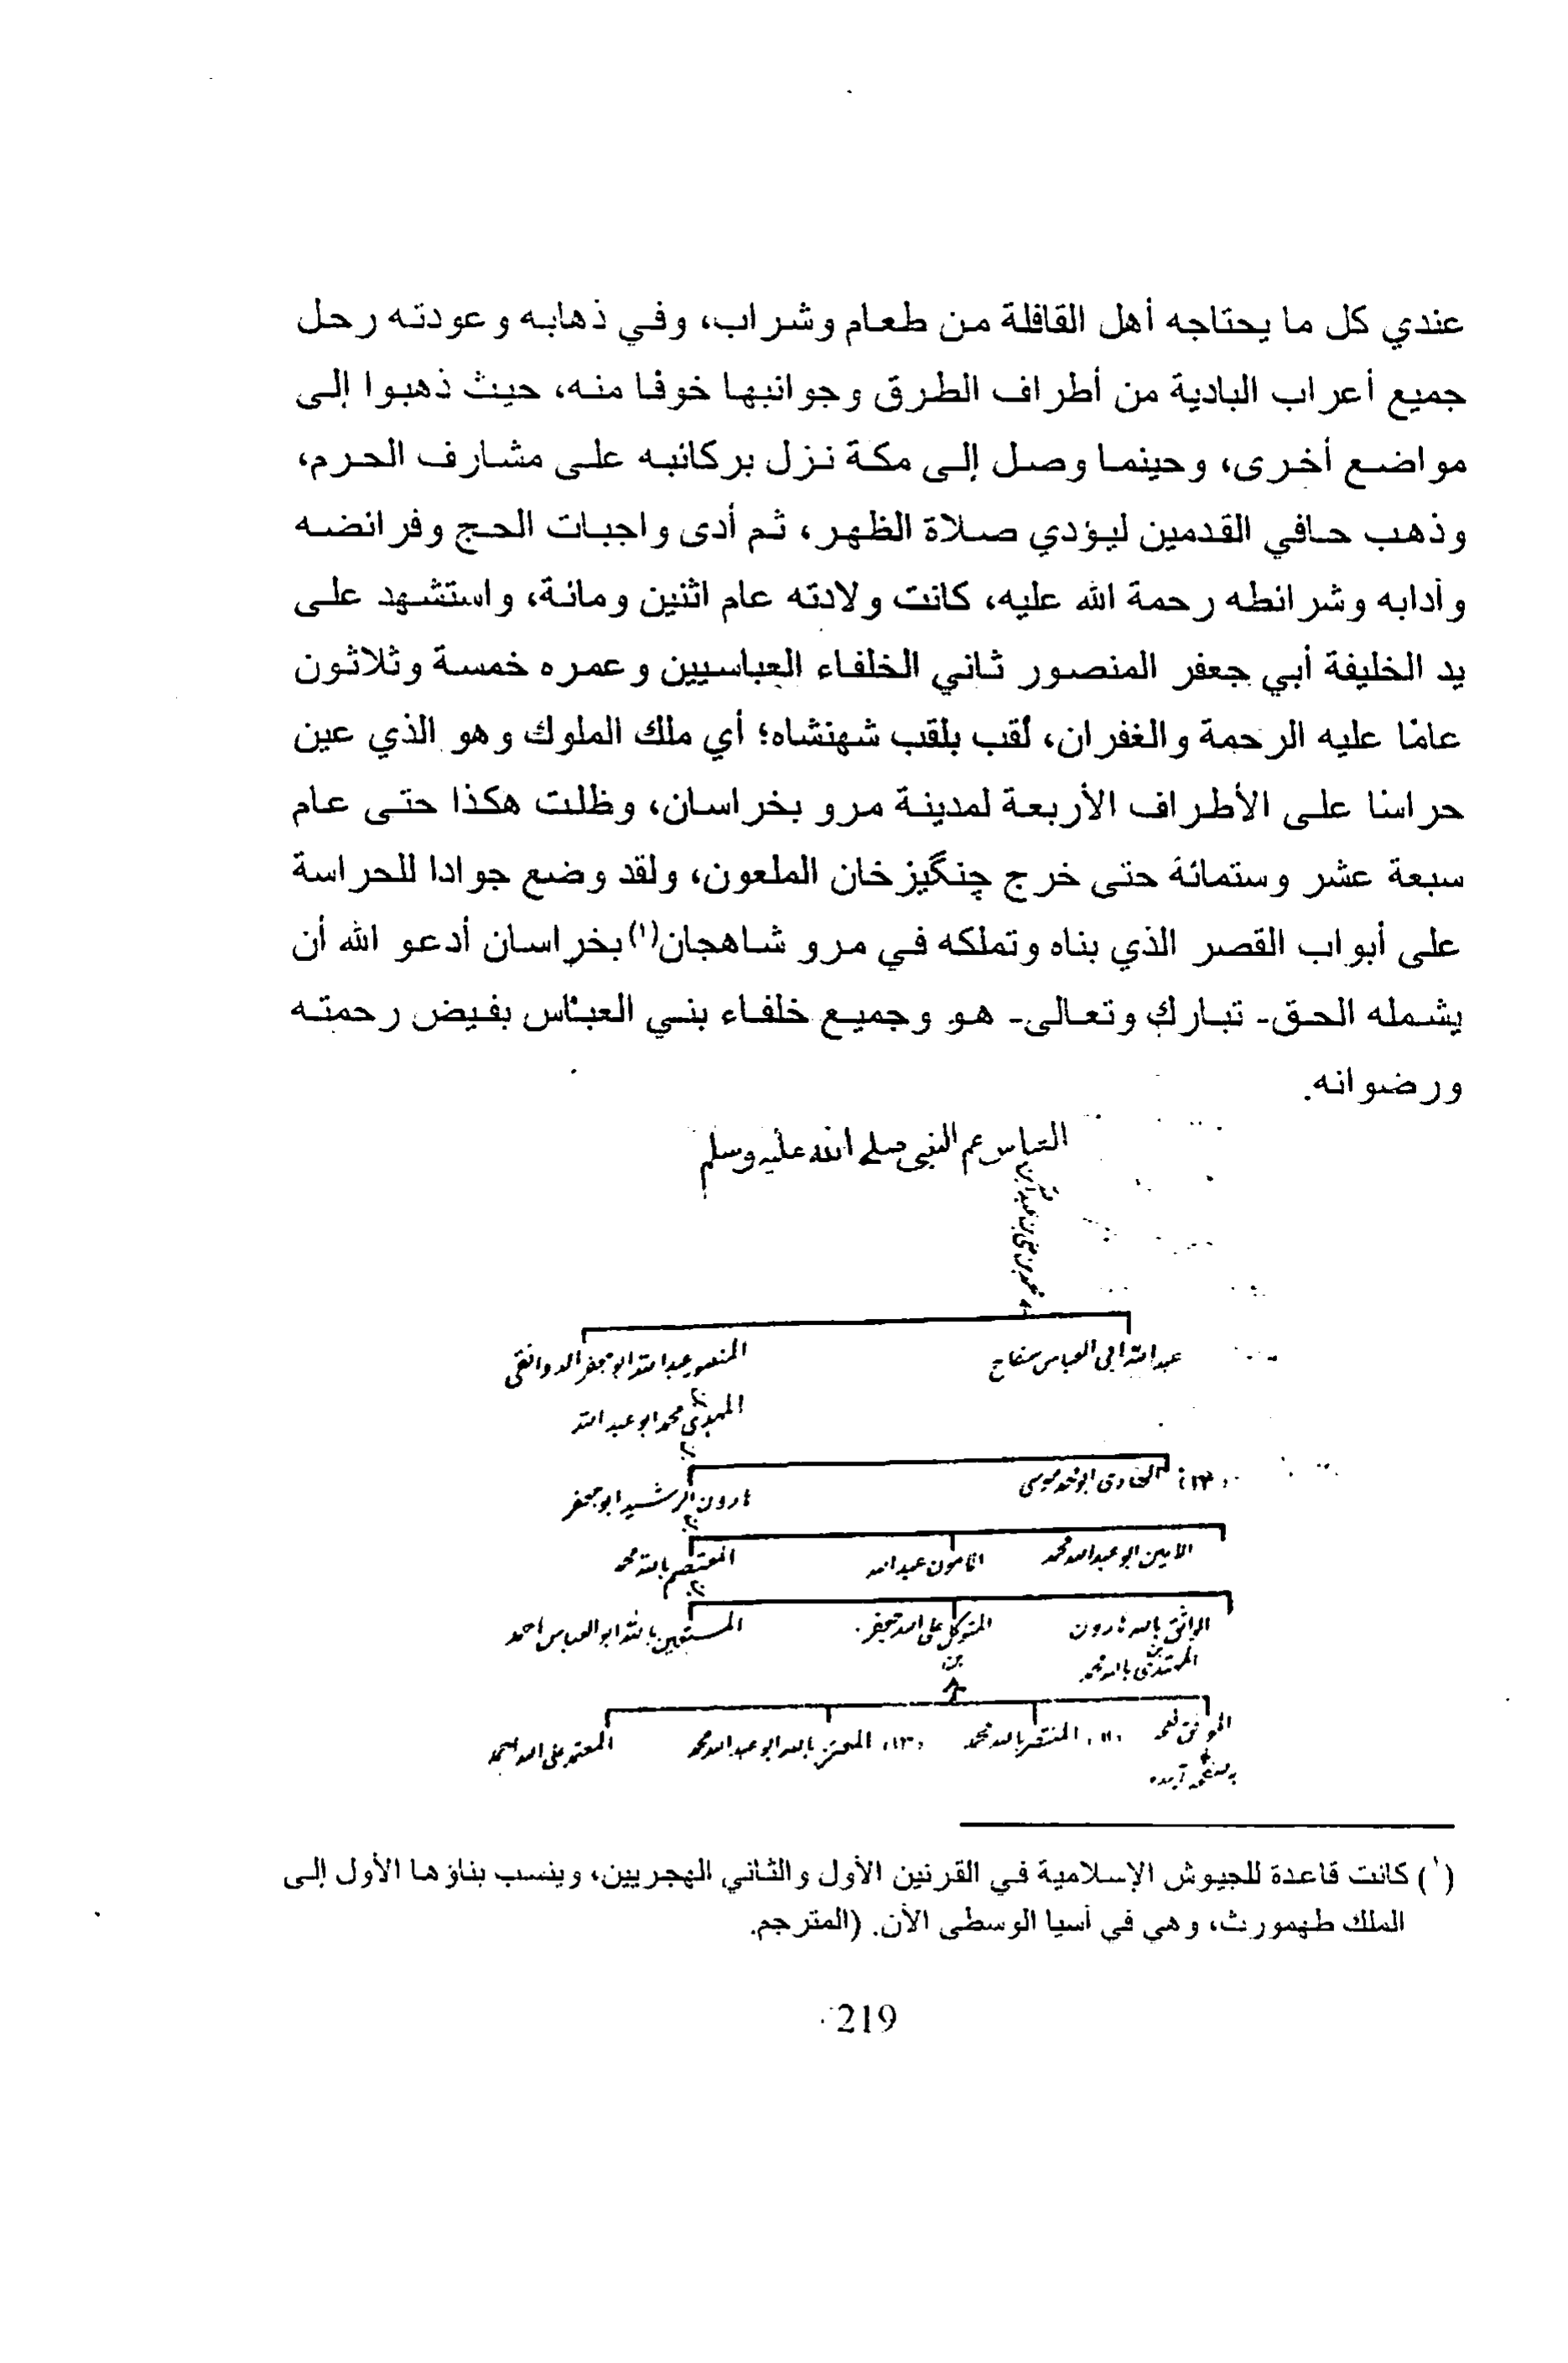 عندي كل ما يحتاجه أهل القافلة من طعام وشراب، وفي ذهابه وعودته رحل
جميع أعراب البادية من أطراف الطرق وجوانبها خوفا منه، حيث ذهبوا إلى
مواضع أخرى، وحينما وصل إلى مكة نزل بركائبه على مشارف الحرم،
وذهب حافي القدمين ليؤدي صلاة الظهر، ثم أدى واجبات الحج وفرائضه
وآدابه وشرائطه رحمة الله عليه، كانت ولادته عام اثنين ومائة، واستشهد على
يد الخليفة أبي جعفر المنصور ثاني الخلفاء العباسيين وعمره خمسة وثلاثون
عامًا عليه الرحمة والغفران، لُقب بلقب شهنشاه؛ أي ملك الملوك وهو الذي عين
حراسًا على الأطراف الأربعة لمدينة مرو بخراسان، وظلت هكذا حتى عام
سبعة عشر وستمائة حتى خرج چنگيزخان الملعون، ولقد وضع جوادا للحراسة
على أبواب القصر الذي بناه وتملكه في مرو شاهجان(١) بخراسان أدعو الله أن
يشمله الحق- تبارك وتعالى- هو وجميع خلفاء بني العبّاس بفيض رحمته
ورضوانه.
العباس عم النبي صلى الله عليه وسلم
عبد الله ابى العباس سفاح
المنصور عبد الله ابو جعفر الدوانقى
المهدى محمد ابو عبد الله
الهادى ابو محمد موسى
هارون الرشيد ابو جعفر
الامين ابو عبد الله محمد
المامون عبد الله
المعتصم بالله محمد
الواثق بالله هارون
المتوكل على الله جعفر
المستعين بالله ابو العباس احمد
المهتدى بالله محمد
بن
(١١) المنتصر بالله محمد
(١٣) المعتز بالله ابو عبد الله محمد
المعتمد على الله احمد
(١) كانت قاعدة للجيوش الإسلامية في القرنين الأول والثاني الهجريين، وينسب بناؤها الأول إلى
الملك طهمورث، وهي في آسيا الوسطى الآن. (المترجم.
219